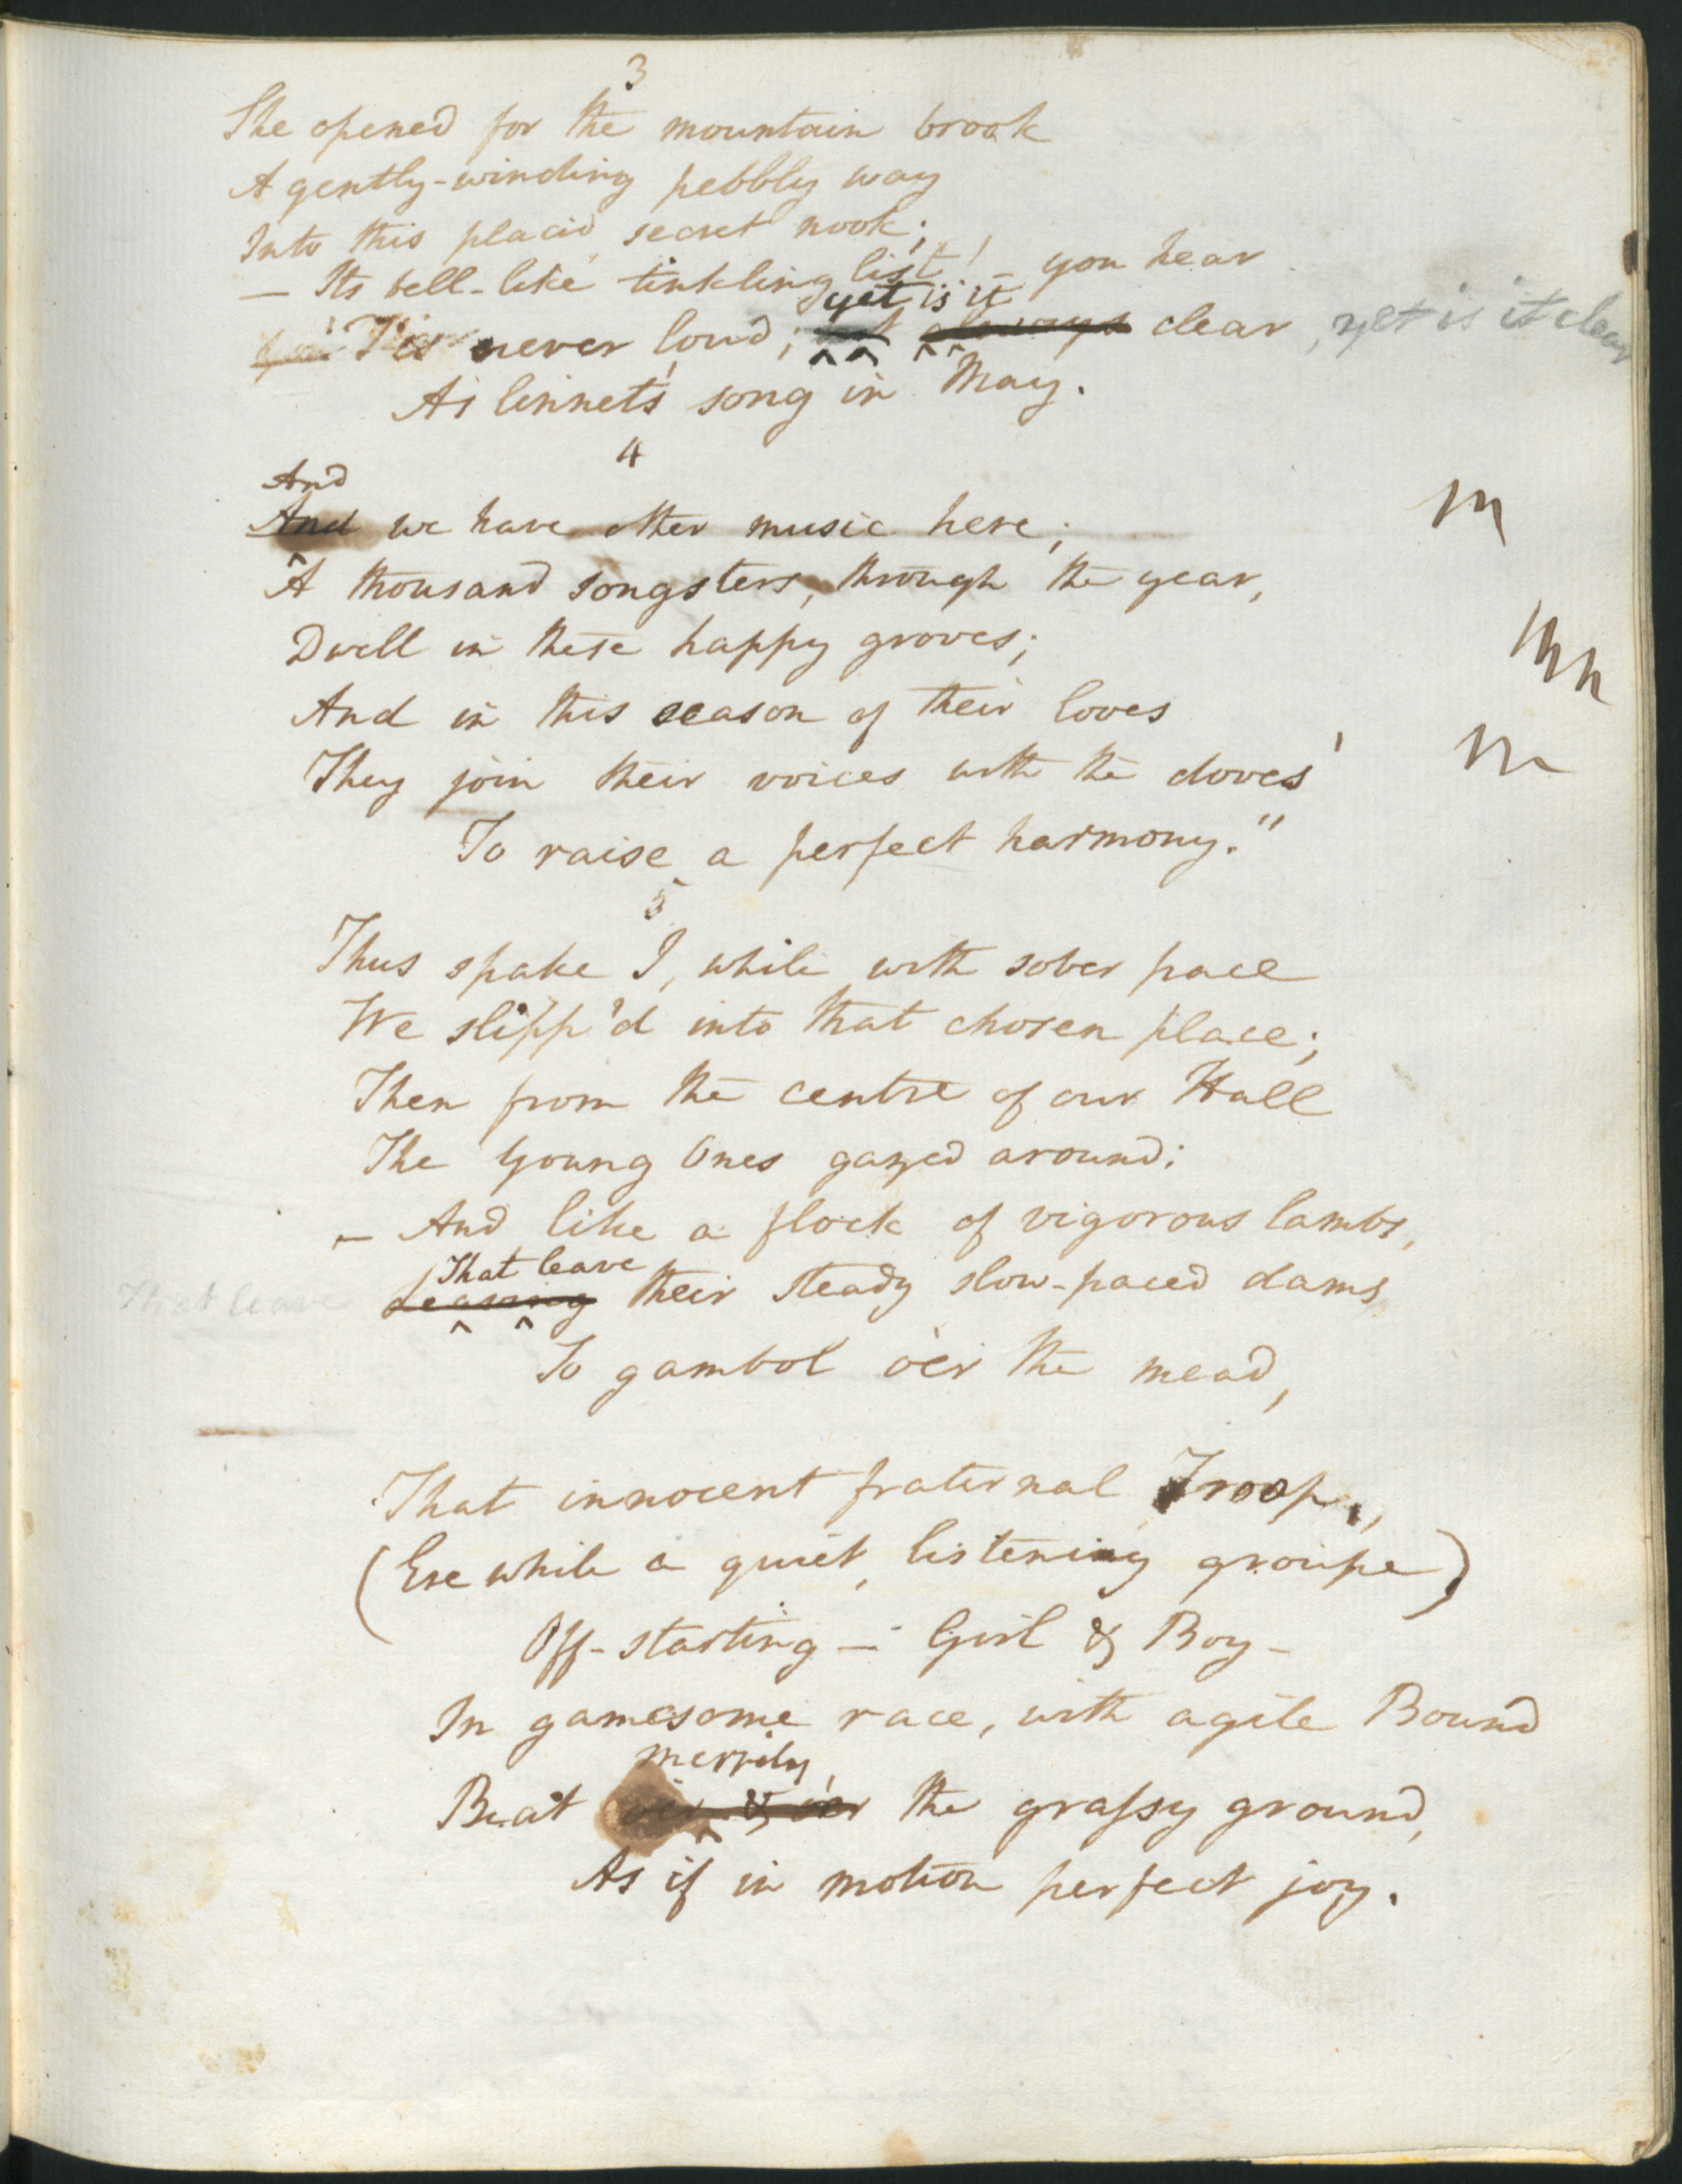 3
She opened for the mountain brook
A gently-winding pebbly way
Into this placid secret nook;
— Its bell-like tinkling list! — you hear
yet is it
'Tis never loud; always clear, yet is it clear
As linnet's song in May.
4
And
And we have other music here;
A thousand songsters, through the year,
Dwell in these happy groves;
And in this season of their loves
They join their voices with the doves'
To raise a perfect harmony."
5
Thus spake I, while with sober pace
We slipp'd into that chosen place;
Then from the centre of our Hall
The Young Ones gazed around;
— And like a flock of vigorous lambs,
That leave
That leave Leaving their steady slow-paced dams
To gambol o'er the mead,
That innocent fraternal Troop,
(Erewhile a quiet, listening groupe)
Off-starting — Girl & Boy —
In gamesome race, with agile Bound
merrily
Beat o'er & o'er the grassy ground,
As if in motion perfect joy.